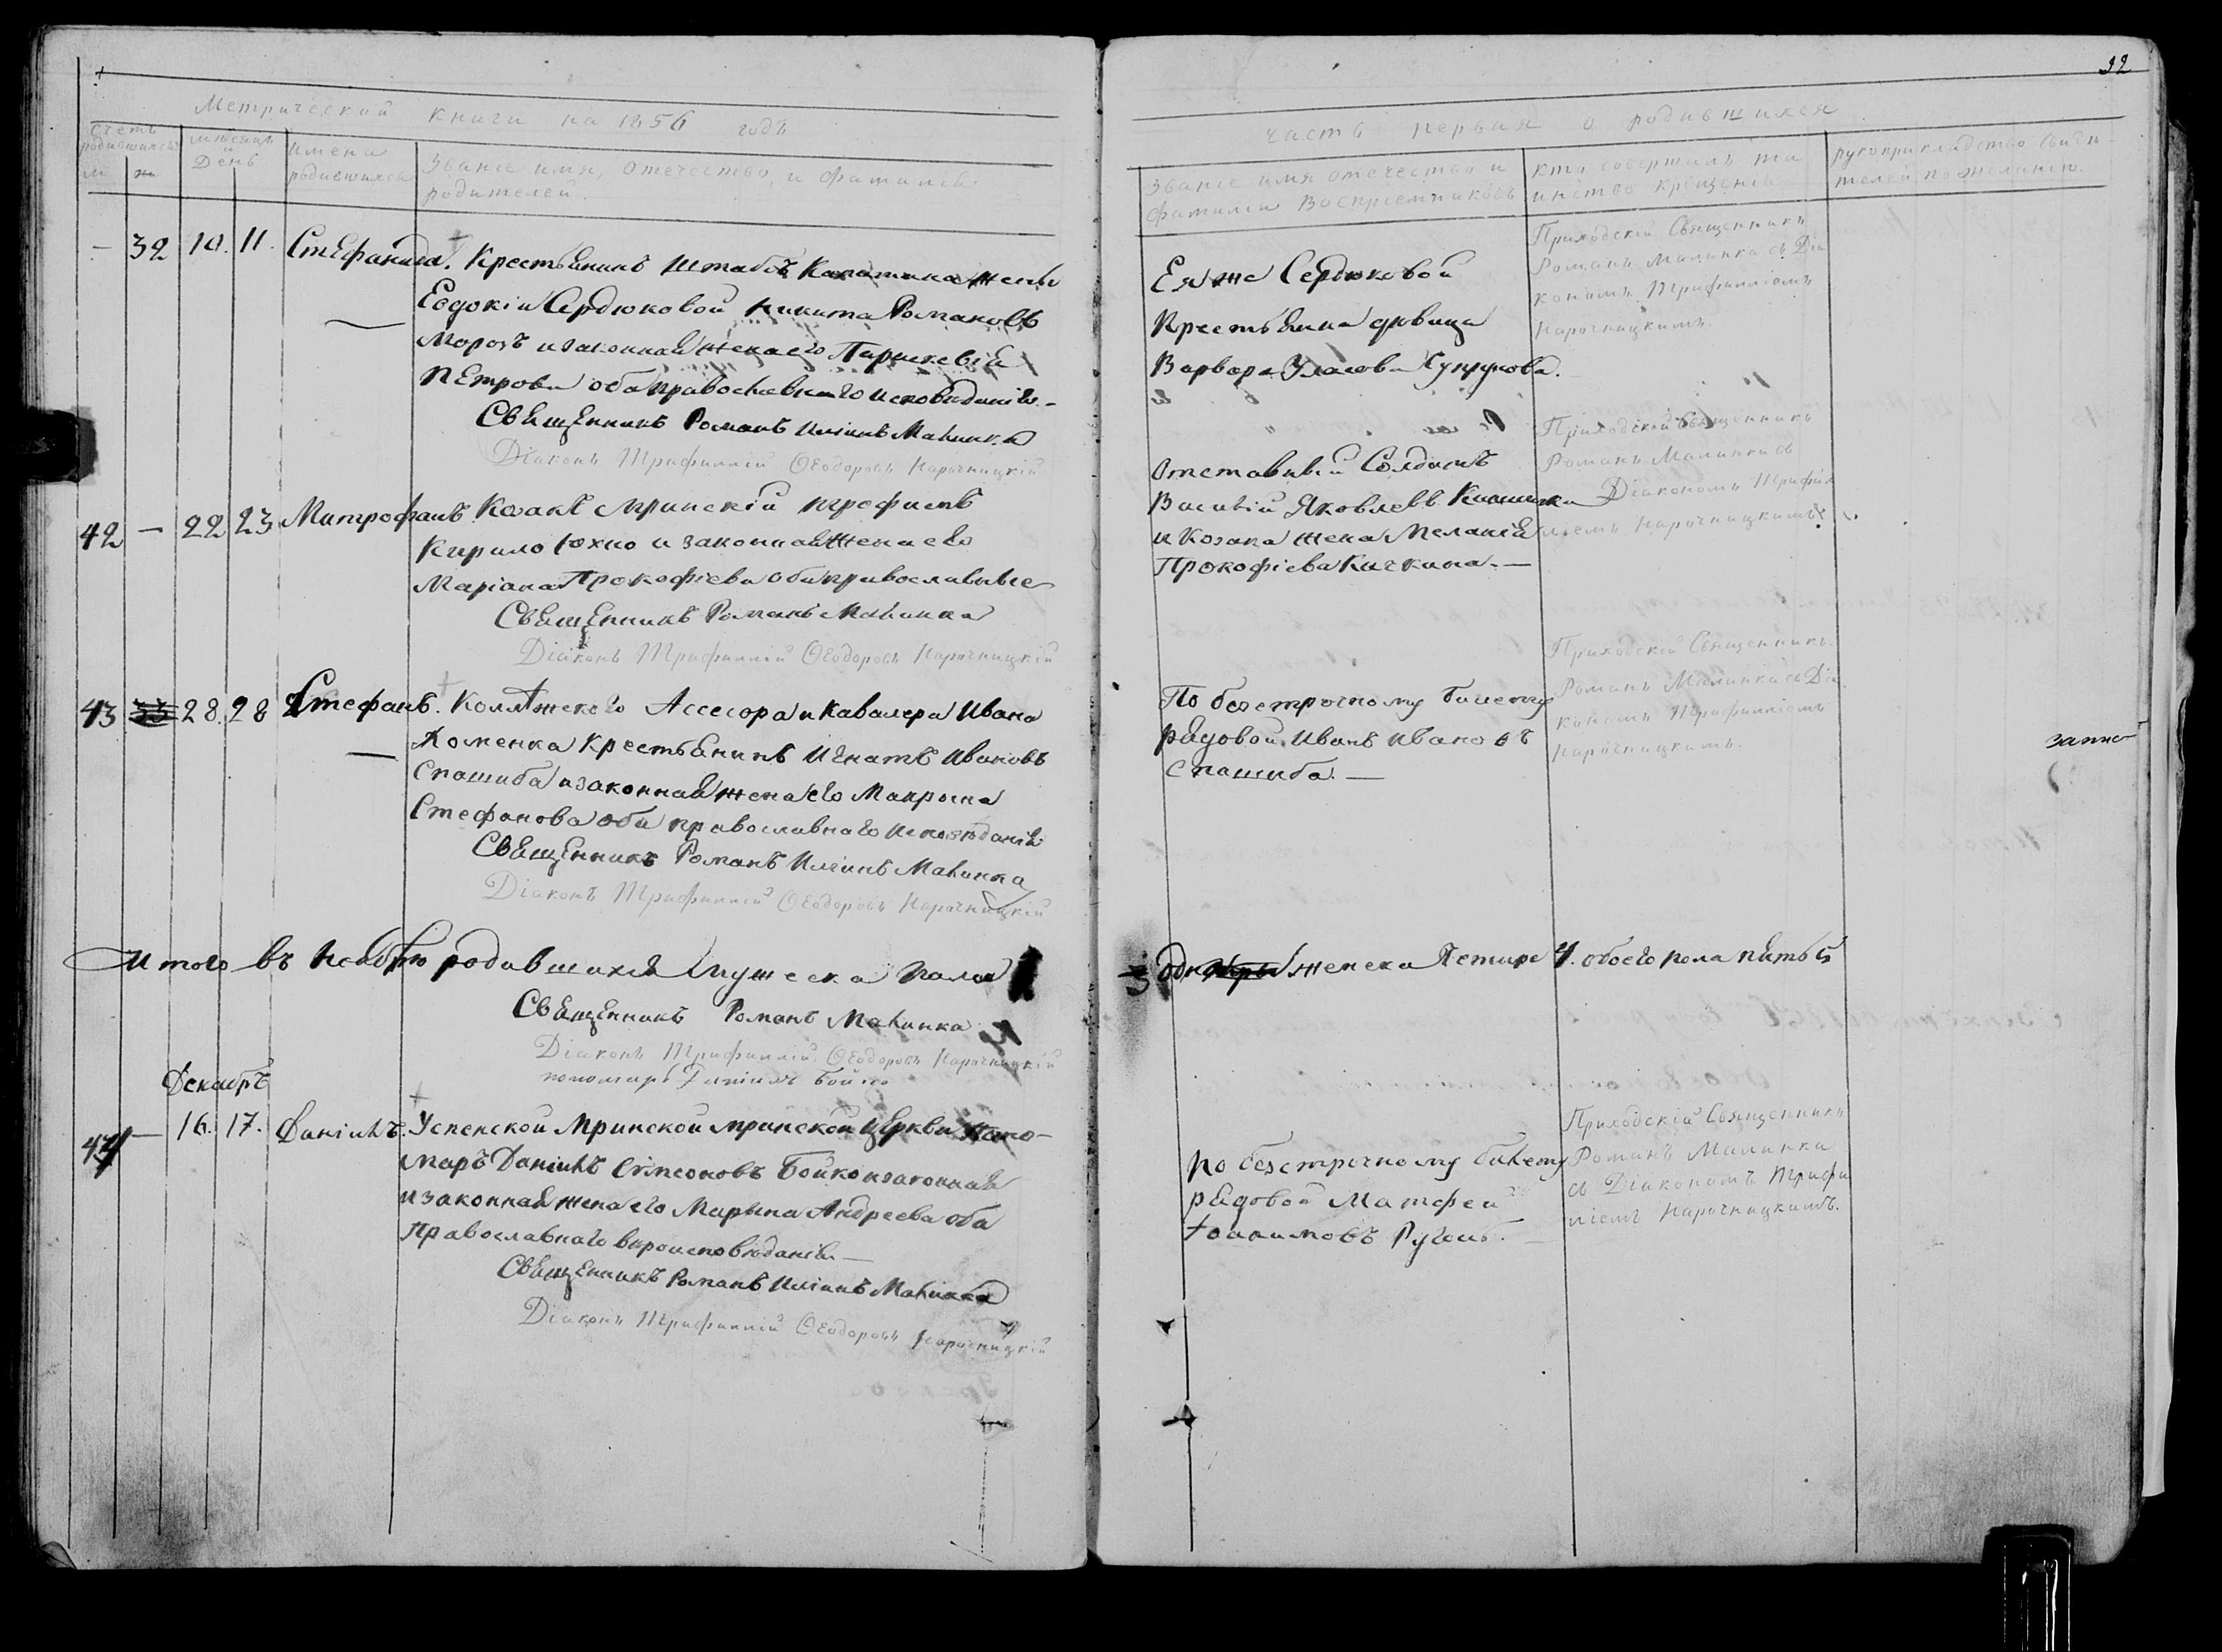 Метрической книги на 1856 годъ
счетъ родившихся
м ж
мѣсяцъ и День
имена родившихся
Званіе имя, отечество, и фамилія
родителей.
— 32 10. 11. Стефанида. Крестьянинъ Штабсъ Капитана жены
Евдокіи Сердюковой Никита Романовъ
Морозъ и законная жена его Параскевія
Петрова оба православнаго исповѣданія. —
Священникъ Романъ Иліинъ Малинка
Діаконъ Трифиллій Ѳеодоровъ Нарочницкій
42 — 22 23 Митрофанъ. Козакъ Мринскій Трофимъ
Кирило Юхно и законная жена его
Маріана Прокофіева оба православные
Священникъ Романъ Малинка
Діаконъ Трифиллій Ѳеодоровъ Нарочницкій
43 33 28. 28 Стефанъ. Коллежскаго Ассесора и Кавалера Ивана
Хоменка Крестьянинъ Игнатъ Ивановъ
Спашиба и законная жена его Макрына
Стефанова оба православнаго исповѣданія
Священникъ Романъ Иліинъ Малинка
Діаконъ Трифиллій Ѳеодоровъ Нарочницкій
Итого въ Ноябрѣ родившихся мужеска пола
Священникъ Романъ Малинка
Діаконъ Трифиллій Ѳеодоровъ Нарочницкій
пономарь Даніилъ Бойко
Декабрь
44 — 16. 17. Даніилъ. Успенской Мринской мринской Церкви Поно-
марь Даніилъ Симеоновъ Бойко и законная
и законная жена его Марына Андреева оба
Православнаго вѣроисповѣданія. —
Священникъ Романъ Иліинъ Малинка
Діаконъ Трифиллій Ѳеодоровъ Нарочницкій
32
часть первая о родившихся
Званіе имя отечество и
фамилія Воспріемниковъ
кто совершалъ та
инство крещенія
рукоприкладство свидѣ-
телей по желанію.
Ея же Сердюковой
Крестьянка дѣвица
Варвара
Приходскій Священникъ
Романъ Малинка съ Діа
кономъ Трифилліемъ
Нарочницкимъ.
Отставный Солдатъ
Василій Яковлевъ
и Козака жена Меланія
Прокофіева Кичкина. —
Приходскій Священникъ
Романъ Малинка съ
Діакономъ Трифил
ліемъ Нарочницкимъ
По безсрочному билету
рядовой Иванъ Ивановъ
Спашиба. —
Приходскій Священникъ
Романъ Малинка съ Діа
кономъ Трифилліемъ
Нарочницкимъ.
женска Четыре 4. обоего пола пять 5
по безсрочному билету
рядовой Матфей
Іоакимовъ
Приходскій Священникъ
Романъ Малинка
съ Діакономъ Трифи
ліемъ Нарочницкимъ.